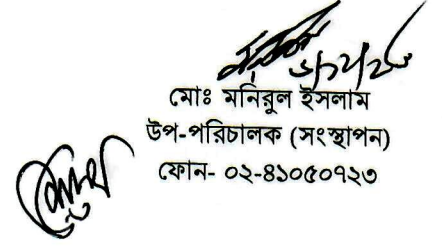 মোঃ মনিরুল ইসলাম
উপ-পরিচালক (সংস্থাপন)
ফোন- ০২-৪১০৫০৭২৩